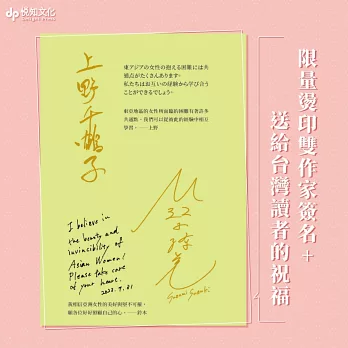 dp 悅知文化
Delight Press
限量燙印雙作家簽名+
送給台灣讀者的祝福
上野千鶴子
東アジアの女性の抱える困難には共
通点がたくさんあります。
私たちはお互いの経験から学び合う
ことができるでしょう。
東亞地區的女性所面臨的困難有著許多
共通點,我們可以從彼此的經驗中相互
學習。——上野
I believe in
the beauty and
invincibility of
Asian Women!
Please take care
of your heart.
2023.7.31
Suzumi Suzuki
我相信亞洲女性的美好與堅不可摧,
願各位好好照顧自己的心。——鈴木